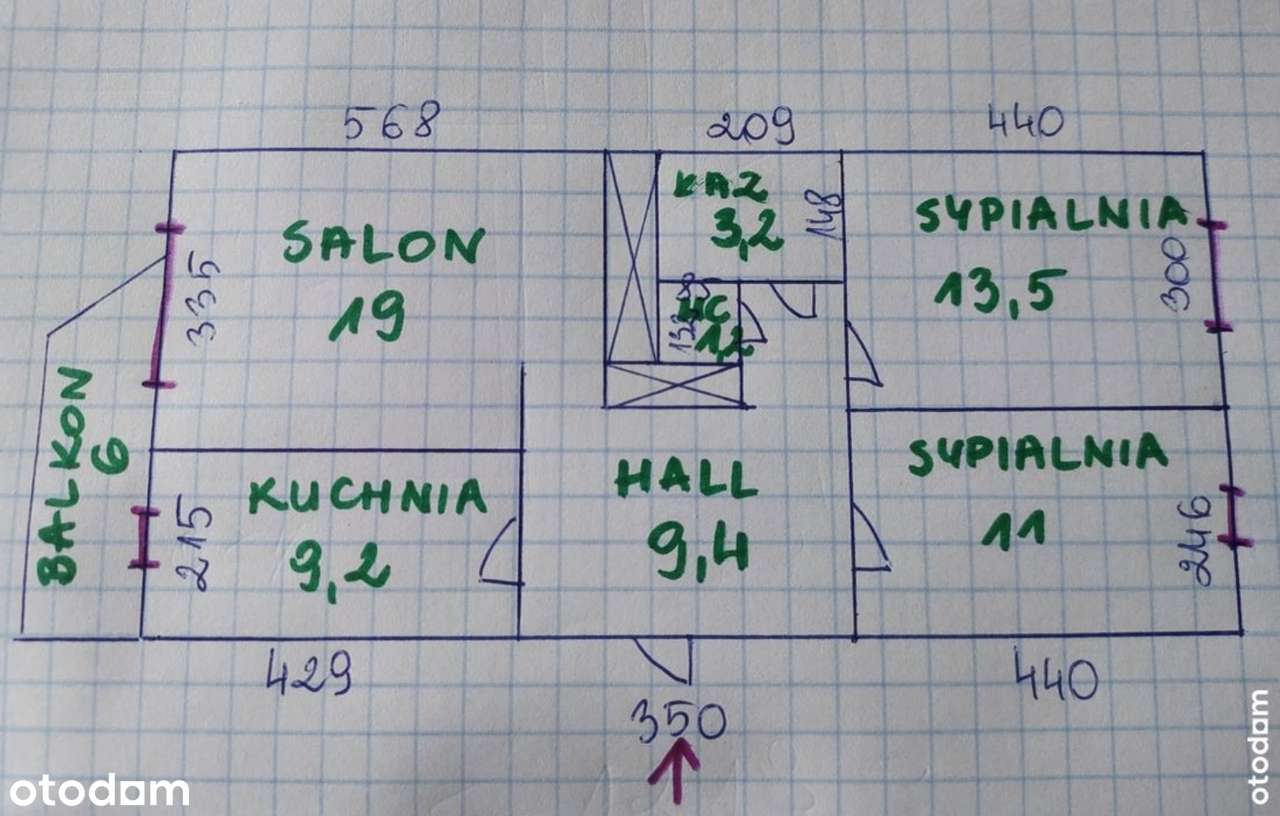 568
209
440
KAZ
3,2
148
SYPIALNIA
13,5
300
SALON
19
335
WC
1,2
BALKON
6
KUCHNIA
9,2
215
HALL
9,4
SYPIALNIA
11
246
429
350
440
otodom
otodom